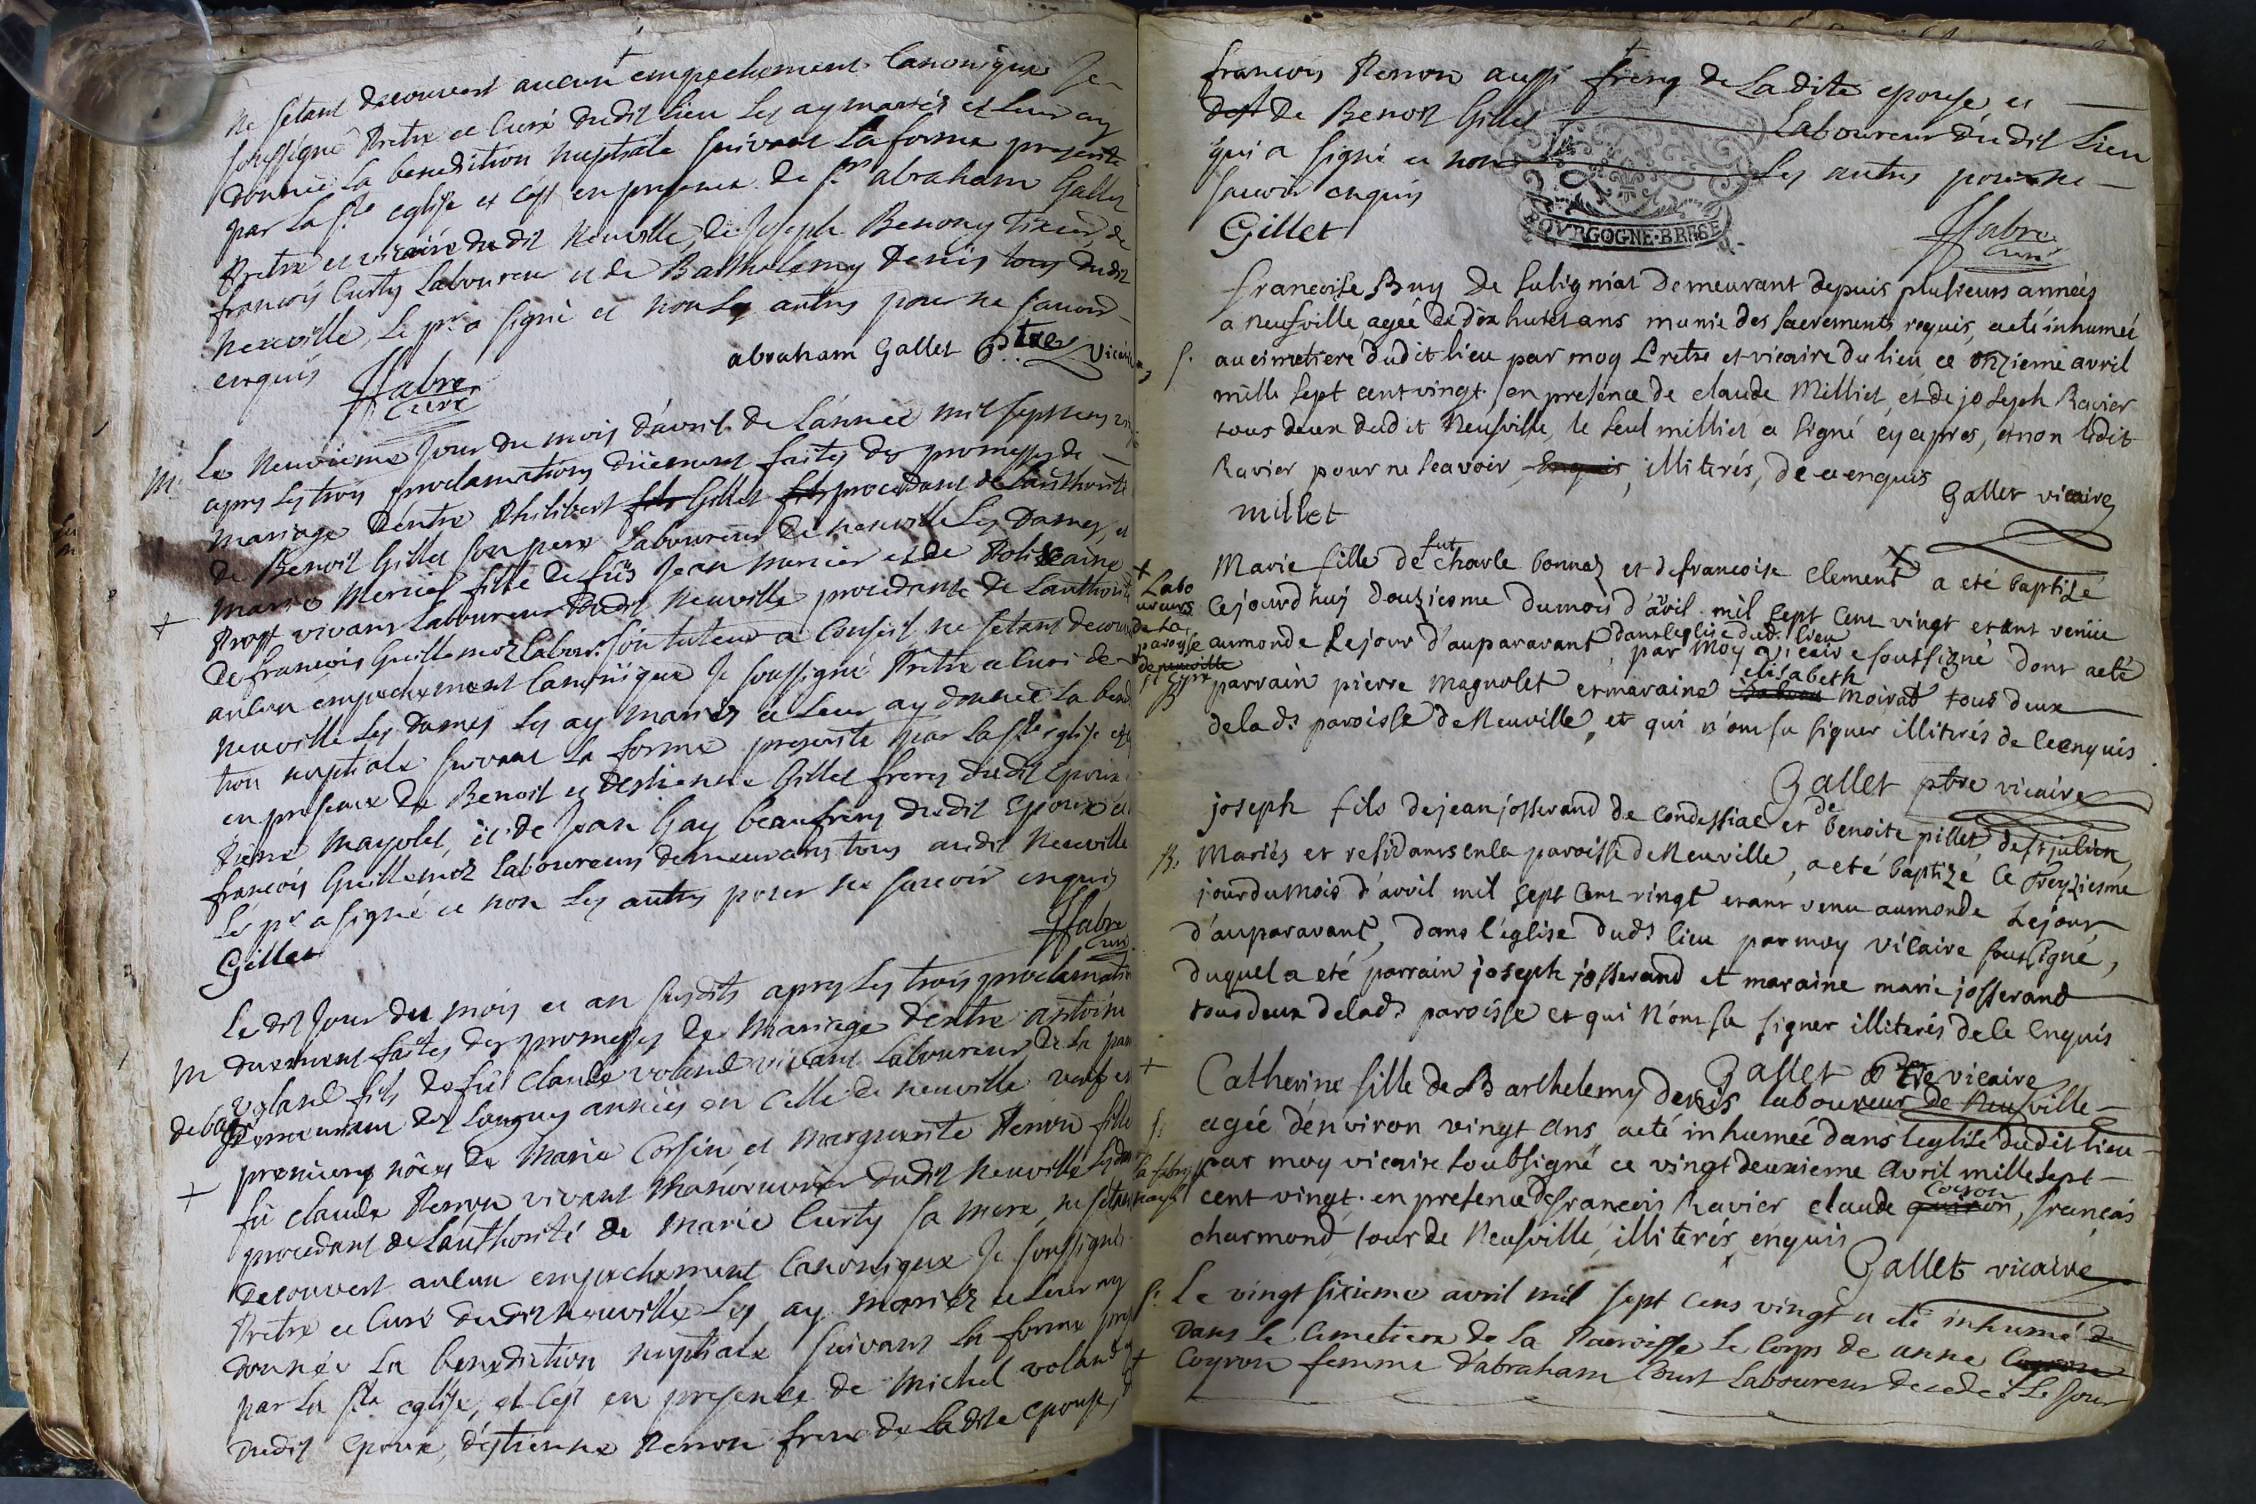 ne setant decouvert aucun empechement Canonique Je
soussigné Pretre et Curé dudit lieu les ay mariéz et leur ay
donnée la benediction nuptiale suivant la forme prescrite
par la Ste eglise et c'est en presence de Sr abraham Gallet
Pretre et vicaire dudit Neuville, de Joseph Benony Tixeur, de
francois Curty Laboureur et de Bartholemy Denis tous dudit
Neuville, le pr a signé et non les autres pour ne savoir
enquis
abraham Gallet Ptre Vicaire
Fabre
Curé
M
Le Neuvieme Jour du mois d'avril de L'année mil sept cens
apres les trois proclamations düement faites des promesses de
mariage d'entre Philibert fils Gillet fils procedant de L'authorité
de Benoit Gillet son pere Laboureur de neuville Les Dames, et
Marie Mercier fille de fûs Jean Mercier et de
+
Prost vivans Laboureur dudit Neuville procedante de L'authorité
de francois Guillemoz Labour. son tuteur a Conseil ne setant decouvert
aucun empechement Canonique Je soussigné Pretre et Curé de
Neuville Les Dames Les ay mariéz et Leur ay donnée La bene
tion nuptiale suivant La forme prescrite par La Ste eglise
en presence de Benoit et d'estienne Gillet freres dudit Epoux
Pierre Mayolet, et de Jean Gay beaufrere dudit Epoux et
francois Guillemoz Laboureurs demeurans tous audit Neuville
Le pr a signé et non Les autres pour ne savoir enquis
Fabre
Curé
Gillet
Le dit Jour du mois et an susdits apres Les trois proclamations
M
duement faites des promesses de Mariage d'entre antoine
voland fils de fû Claude voland vivant Laboureur de La
demeurant dez Longues années en celle de neuville veuf en
premieres nôces de Marie Corsin et Marguerite Renon fille
+
fû claude Renon vivant Manouvrier dudit Neuville
procedant de L'authorité de Marie Curty sa mere, ne setant
decouvert aucun empechement Canonique Je soussigné
Pretre et Curé dudit neuville Les ay mariéz et Leur ay
donnée La benediction nuptiale suivant La forme
par La Ste eglise, et c'est en presence de Michel voland
dudit Epoux, d'estienne Renon frere de La dite epouse,
francois Renon aussi freres de Ladite epouse, et
de Benoit Gillet Laboureur dudit Lieu
qui a signé et non Les autres pour ne
savoir enquis
BOVRGOGNE·BRESSE
Gillet
Fabre
Curé
francoise Buy de Suligniat demeurant depuis plusieurs années
a Neufville agée de dix huict ans munie des sacrements requis, a eté inhumeé
S.
au cimetiere dudit lieu par moy Pretre et vicaire du lieu ce onzieme avril
mille sept cent vingt, en presence de claude Milliet, et de joseph Ravier
tous deux dudit Neufville, le seul milliet a signé cy apres, et non ledit
Ravier pour ne sçavoir enquis, illiterés, de ce enquis
Gallet vicaire
millet
Marie fille de fut charle bonnaz et de francoise Clement a eté baptizé
+
Labo
ureurs
de La
paroisse
de neuville
St Cyre
B
Cejourd'huj douziesme du mois d'avril mil sept cent vingt etant venüe
au monde Le jour d'auparavant dans l'eglise dud. lieu par moy vicaire soussigné dont a eté
parrain pierre magnolet et maraine elisabeth moirat tous deux
de lade paroisse de Neuville, et qui n'ont su signer illiterés de ce enquis
Gallet ptre vicaire
joseph fils de jean josserand de Condessiat et de benoite pillet de st julien,
B.
Mariés et residants en la paroisse de Neuville, a eté baptizé Ce treyziesme
jour du mois d'avril mil sept cent vingt etant venu au monde Le jour
d'auparavant, dans l'église dudt lieu par moy vicaire soussigné,
duquel a eté parrain joseph josserand et maraine marie josserand
tous deux de lade paroisse et qui N'ont su signer illiterés de ce Enquis
Gallet Ptre vicaire
+
Catherine fille de Barthelemy Denis laboureur de Neufville
S.
agée d'environ vingt ans a eté inhumeé dans l'eglise dudit lieu
par moy vicaire soubsigné ce vingt deuxieme avril mille sept
cent vingt. en presence de francois Ravier claude quiron Coiron, francois
charmond tous de Neufville, illiterés enquis
Gallet vicaire
S.
Le vingt sixieme avril mil sept cens vingt a été inhumé
Dans Le Cimetiere de La Parroisse Le Corps de anne
+
Coyron femme d'abraham Court Laboureur decedeé Le Jour